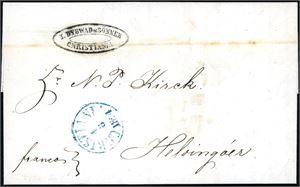 J. DYBWAD & SØNNER
CHRISTIANIA
Hr. N. P. Kirck.
CHRISTIANIA
franco
Helsingöer